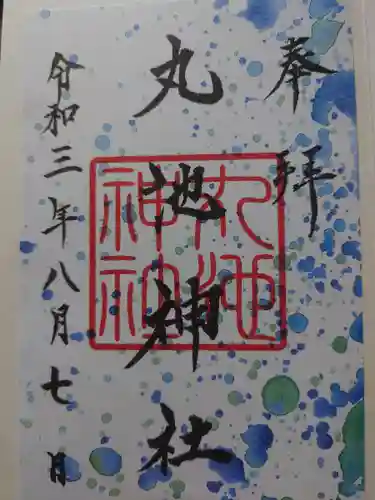 奉拝
丸池神社
丸池神社
令和三年八月七日